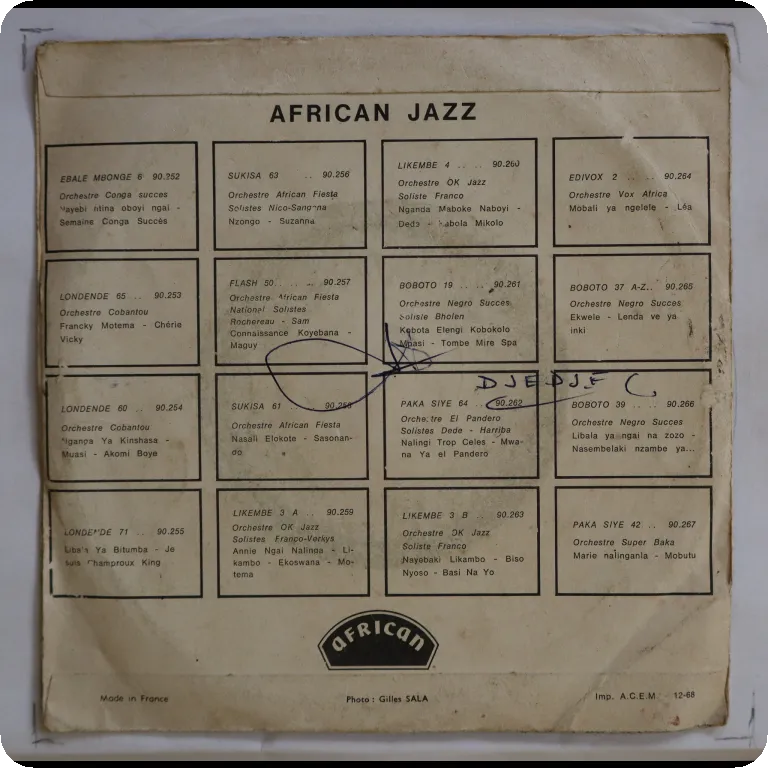 AFRICAN JAZZ
EBALE MBONGE 6 90.252
Orchestre Conga succes
ntina oboyi ngai -
Semaine Conga Succès
LONDENDE 65 .. 90.253
Orchestre Cobantou
Francky Motema - Chérie
Vicky
LONDENDE 60 .. 90.254
Orchestre Cobantou
Ya Kinshasa -
Muasi - Akomi Boye
90.255
Ya Bitumba - Je
King
SUKISA 63 .. 90.256
Orchestre African Fiesta
Solistes
Nzongo - Suzanna
FLASH 50 .. .. 90.257
Orchestre African Fiesta
National Solistes
Rochereau - Sam
Connaissance Koyebana -
Maguy
SUKISA 61 ..
Orchestre African Fiesta
Nasali Elokote - Sasonan-
do
LIKEMBE 3 A .. 90.259
Orchestre OK Jazz
Solistes Franco-Verkys
Annie Ngai Nalinga - Li-
kambo - Ekoswana - Mo-
tema
LIKEMBE 4 .. .. 90.260
Orchestre OK Jazz
Soliste Franco
Nganda Maboke Naboyi -
Mikolo
BOBOTO 19 .. .. 90.261
Orchestre Negro Succes
Soliste Bholen
Kobota Elengi Kobokolo
Mpasi - Tombe Mire Spa
PAKA SIYE 64 .. 90.262
Orchestre El Pandero
Solistes Dede - Harriba
Nalingi Trop Celes - Mwa-
na Ya el Pandero
LIKEMBE 3 B .. 90.263
Orchestre OK Jazz
Soliste Franco
Nayebaki Likambo - Biso
Nyoso - Basi Na Yo
EDIVOX 2 .. .. 90.264
Orchestre Vox Africa
Mobali ya ngelele - Léa
BOBOTO 37 A-Z.. 90.265
Orchestre Negro Succes
Ekwele - Lenda ve ya
inki
DJEDJE C.
BOBOTO 39 .. 90.266
Orchestre Negro Succes
Libala ya ngai na zozo -
Nasembelaki nzambe ya...
PAKA SIYE 42 .. 90.267
Orchestre Super Baka
Marie nalinganla - Mobutu
AFRICAN
Made in France
Photo : Gilles SALA
Imp. A.C.E.M. 12-68